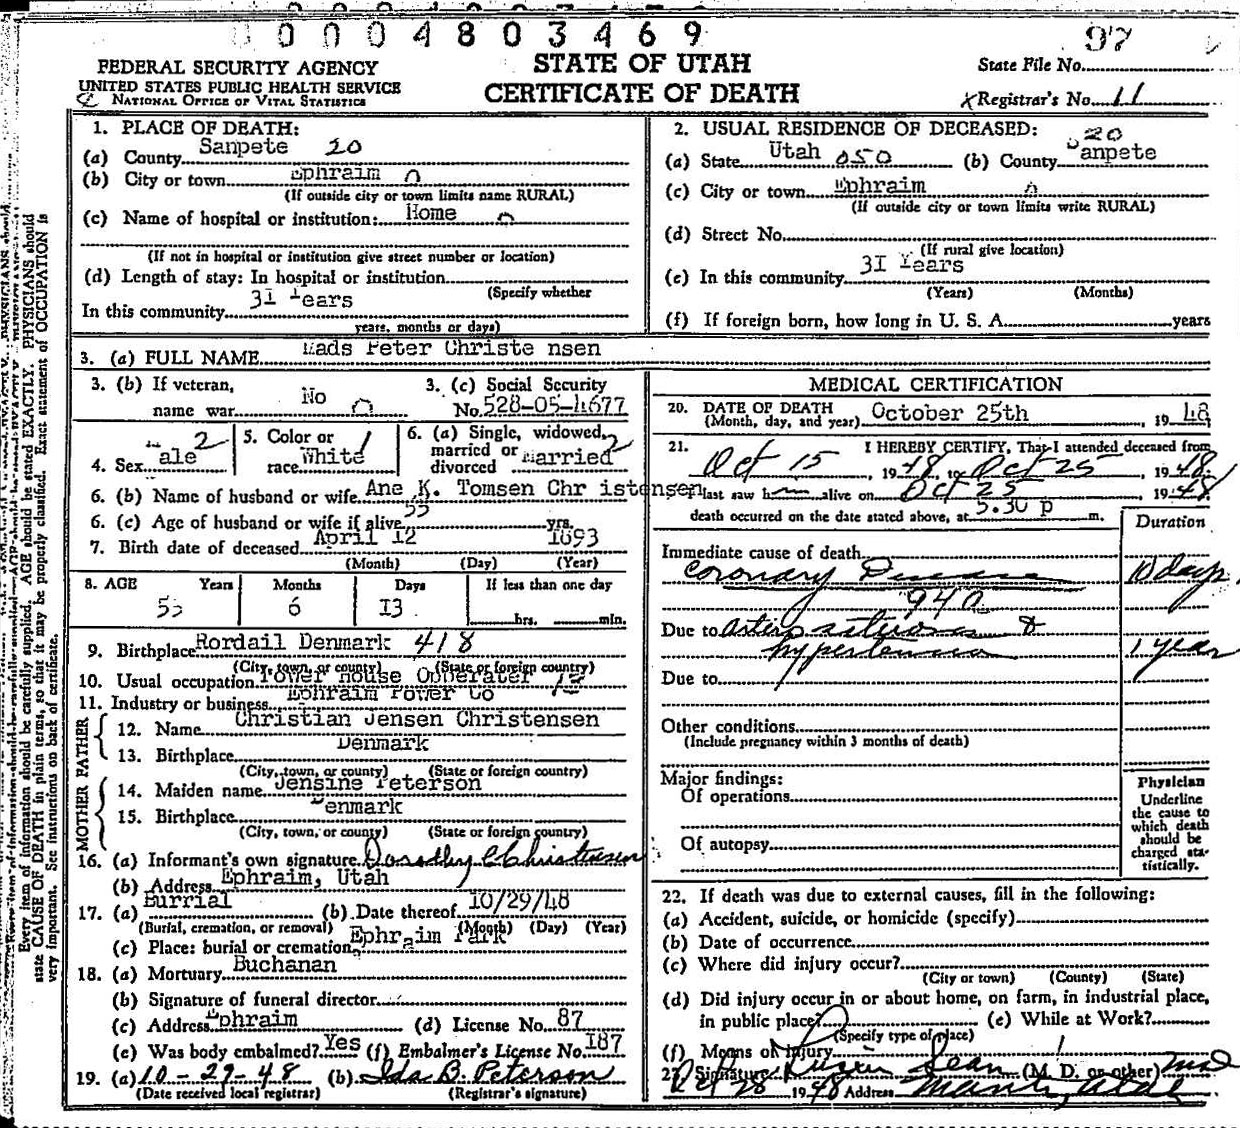 0004803469
97
STATE OF UTAH
CERTIFICATE OF DEATH
FEDERAL SECURITY AGENCY
UNITED STATES PUBLIC HEALTH SERVICE
NATIONAL OFFICE OF VITAL STATISTICS
State File No.
Registrar's No. 11
Every item of information should be carefully supplied. AGE should be stated EXACTLY. PHYSICIANS should
state CAUSE OF DEATH in plain terms, so that it may be properly classified. Exact statement of OCCUPATION is
very important. See instructions on back of certificate.
1. PLACE OF DEATH:
(a) County Sanpete 20
(b) City or town Ephraim
(If outside city or town limits name RURAL)
(c) Name of hospital or institution: Home
(If not in hospital or institution give street number or location)
(d) Length of stay: In hospital or institution
(Specify whether
In this community 31 Years
years, months or days)
2. USUAL RESIDENCE OF DECEASED:
20
(a) State Utah 050 (b) County Sanpete
(c) City or town Ephraim
(If outside city or town limits write RURAL)
(d) Street No.
(If rural give location)
(e) In this community 3I Years
(Years) (Months)
(f) If foreign born, how long in U. S. A. years
3. (a) FULL NAME Mads Peter Christe nsen
3. (b) If veteran, name war No
3. (c) Social Security No. 528-05-4677
4. Sex Male 2
5. Color or race White 1
6. (a) Single, widowed, married or divorced Married 2
6. (b) Name of husband or wife Ane K. Tomsen Chr istensen
6. (c) Age of husband or wife if alive 55 yrs.
7. Birth date of deceased April 12 1893
(Month) (Day) (Year)
8. AGE Years Months Days If less than one day
55 6 I3 hrs. min.
9. Birthplace Rordail Denmark 418
(City, town, or county) (State or foreign country)
10. Usual occupation Power House Opperater
11. Industry or business Ephraim Power Co
FATHER
12. Name Christian Jensen Christensen
13. Birthplace Denmark
(City, town, or county) (State or foreign country)
MOTHER
14. Maiden name Jensine Peterson
15. Birthplace Denmark
(City, town, or county) (State or foreign country)
16. (a) Informant's own signature Dorothy Christensen
(b) Address Ephraim, Utah
17. (a) Burrial (b) Date thereof 10/29/48
(Burial, cremation, or removal) (Month) (Day) (Year)
(c) Place: burial or cremation Ephraim Park
18. (a) Mortuary Buchanan
(b) Signature of funeral director
(c) Address Ephraim (d) License No. 87
(e) Was body embalmed? Yes (f) Embalmer's License No. I87
19. (a) 10-29-48 (b) Ida B. Peterson
(Date received local registrar) (Registrar's signature)
MEDICAL CERTIFICATION
20. DATE OF DEATH October 25th 1948
(Month, day, and year)
21. I HEREBY CERTIFY, That I attended deceased from
Oct 15 1948, to Oct 25 1948.
I last saw him alive on Oct 25 1948
death occurred on the date stated above, at 5.30 p m.
Duration
Immediate cause of death
Coronary Disease 10 days
940
Due to arteriosclerosis &
hypertension 1 year
Due to
Other conditions
(Include pregnancy within 3 months of death)
Major findings:
Of operations
Of autopsy
Physician
Underline the cause to which death should be charged statistically.
22. If death was due to external causes, fill in the following:
(a) Accident, suicide, or homicide (specify)
(b) Date of occurrence
(c) Where did injury occur?
(City or town) (County) (State)
(d) Did injury occur in or about home, on farm, in industrial place,
in public place? (e) While at Work?
(Specify type of place)
(f) Means of Injury
23. Signature Lucien Sears (M. D. or other) MD
Oct 28 1948 Address Manti, Utah